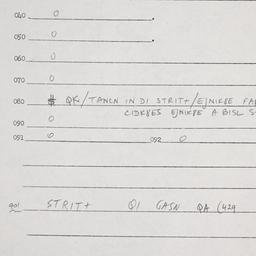 040 0
050 0
060 0
070 0
080 # QK/TANCN IN DI STRIT+/EJNIKEE FA
CIDKEES EJNIKEE A BISL S
090 0
091 0 092 0
901 STRIT+ QI GASN QA (424